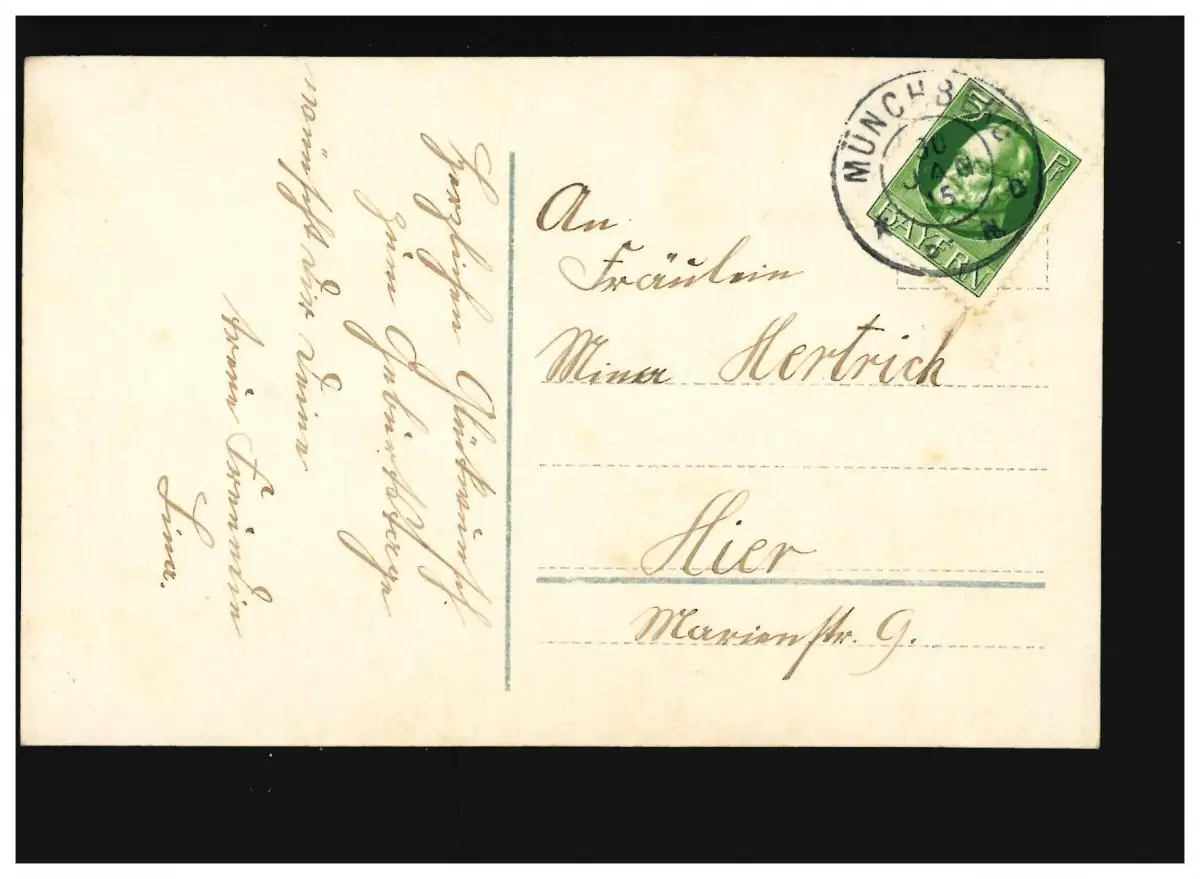 Herzlichen Glückwunsch
zum Geburtstage
wünscht Dir Deine
treue Freundin
Lina.
An
Fräulein
Mina Hertrich
Hier
Marienstr. 9.
MÜNCHBERG
30
15
5 Pf
BAYERN